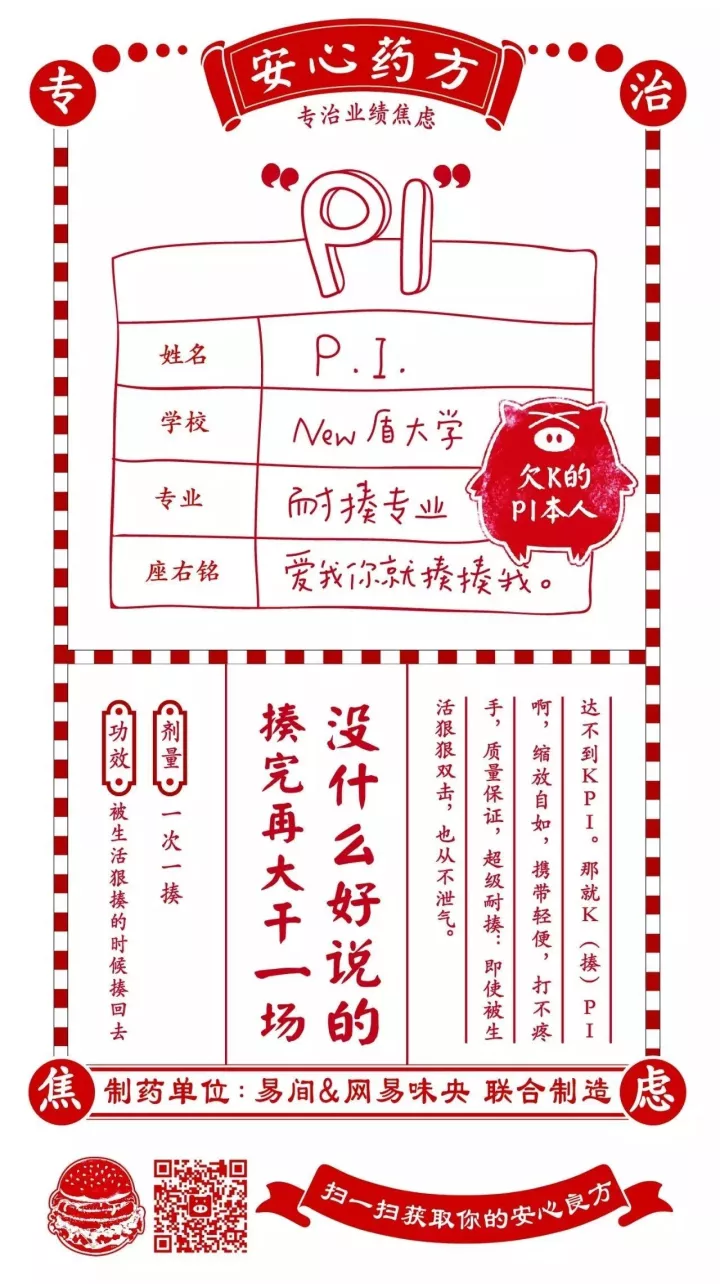 专治
安心药方
专治业绩焦虑
“PI”
姓名 P.I.
学校 New盾大学
专业 耐揍专业
座右铭 爱我你就揍揍我。
欠K的
PI本人
达不到KPI。那就K（揍）PI
啊，缩放自如，携带轻便，打不疼
手，质量保证，超级耐揍：即使被生
活狠狠双击，也从不泄气。
没什么好说的
揍完再大干一场
剂量 一次一揍
功效 被生活狠揍的时候揍回去
焦虑
制药单位：易间&网易味央 联合制造
扫一扫获取你的安心良方